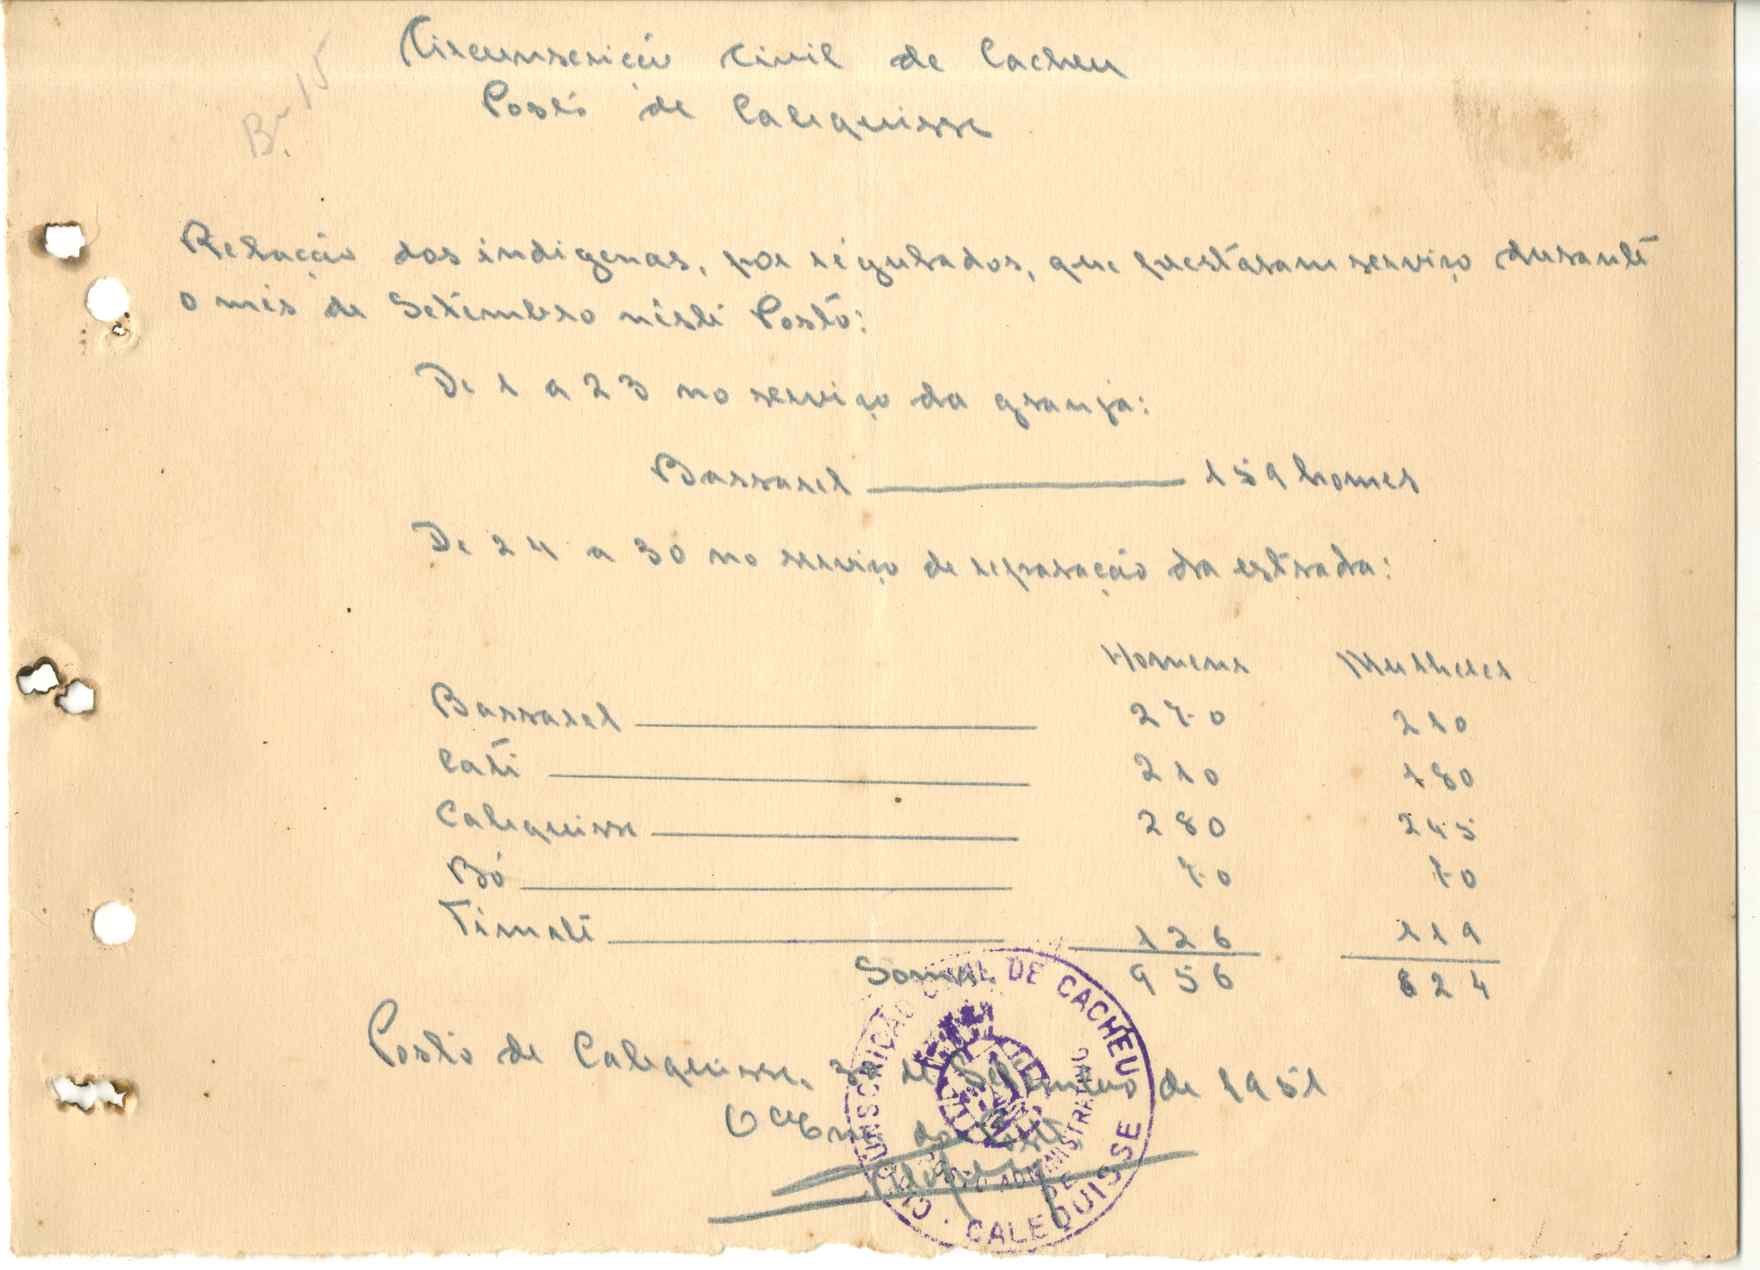 Bº 15
Circunscrição Civil de Cacheu
Posto de Calequisse
Relação dos indigenas, por régulados, que prestaram serviço durante
o mês de Setembro nêste Posto:
De 1 a 23 no serviço da granja:
Bassarel ———— 159 homes
De 24 a 30 no serviço de reparação da estrada:
Homens Mulheres
Bassarel ———— 270 210
Cati ———— 210 180
Calequisse ———— 280 245
Bó ———— 70 70
Timate ———— 126 119
Soma 956 824
Posto de Calequisse, 30 de Setembro de 1951
do Posto
CIRCUNSCRIÇÃO CIVIL DE CACHEU
ADMINISTRATIVO
DE
CALEQUISSE